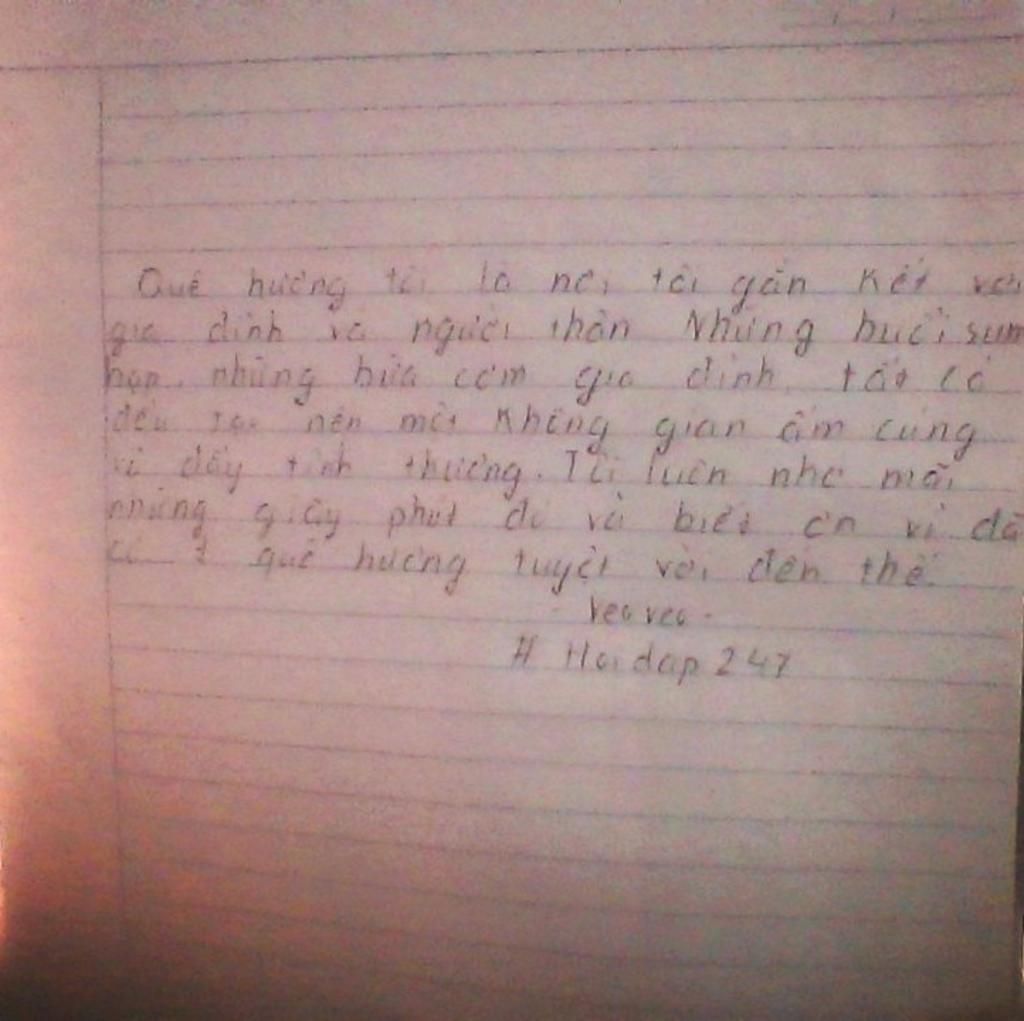 Quê hương tôi là nơi tôi gắn kết với
gia đình và người thân Những buổi sum
họp, những bữa cơm gia đình, tất cả
đều tạo nên một không gian ấm cúng
và đầy tình thương. Tôi luôn nhớ mãi
những giây phút đó và biết ơn vì đã
có 1 quê hương tuyệt vời đến thế.
- veo veo -
# Hoidap 247